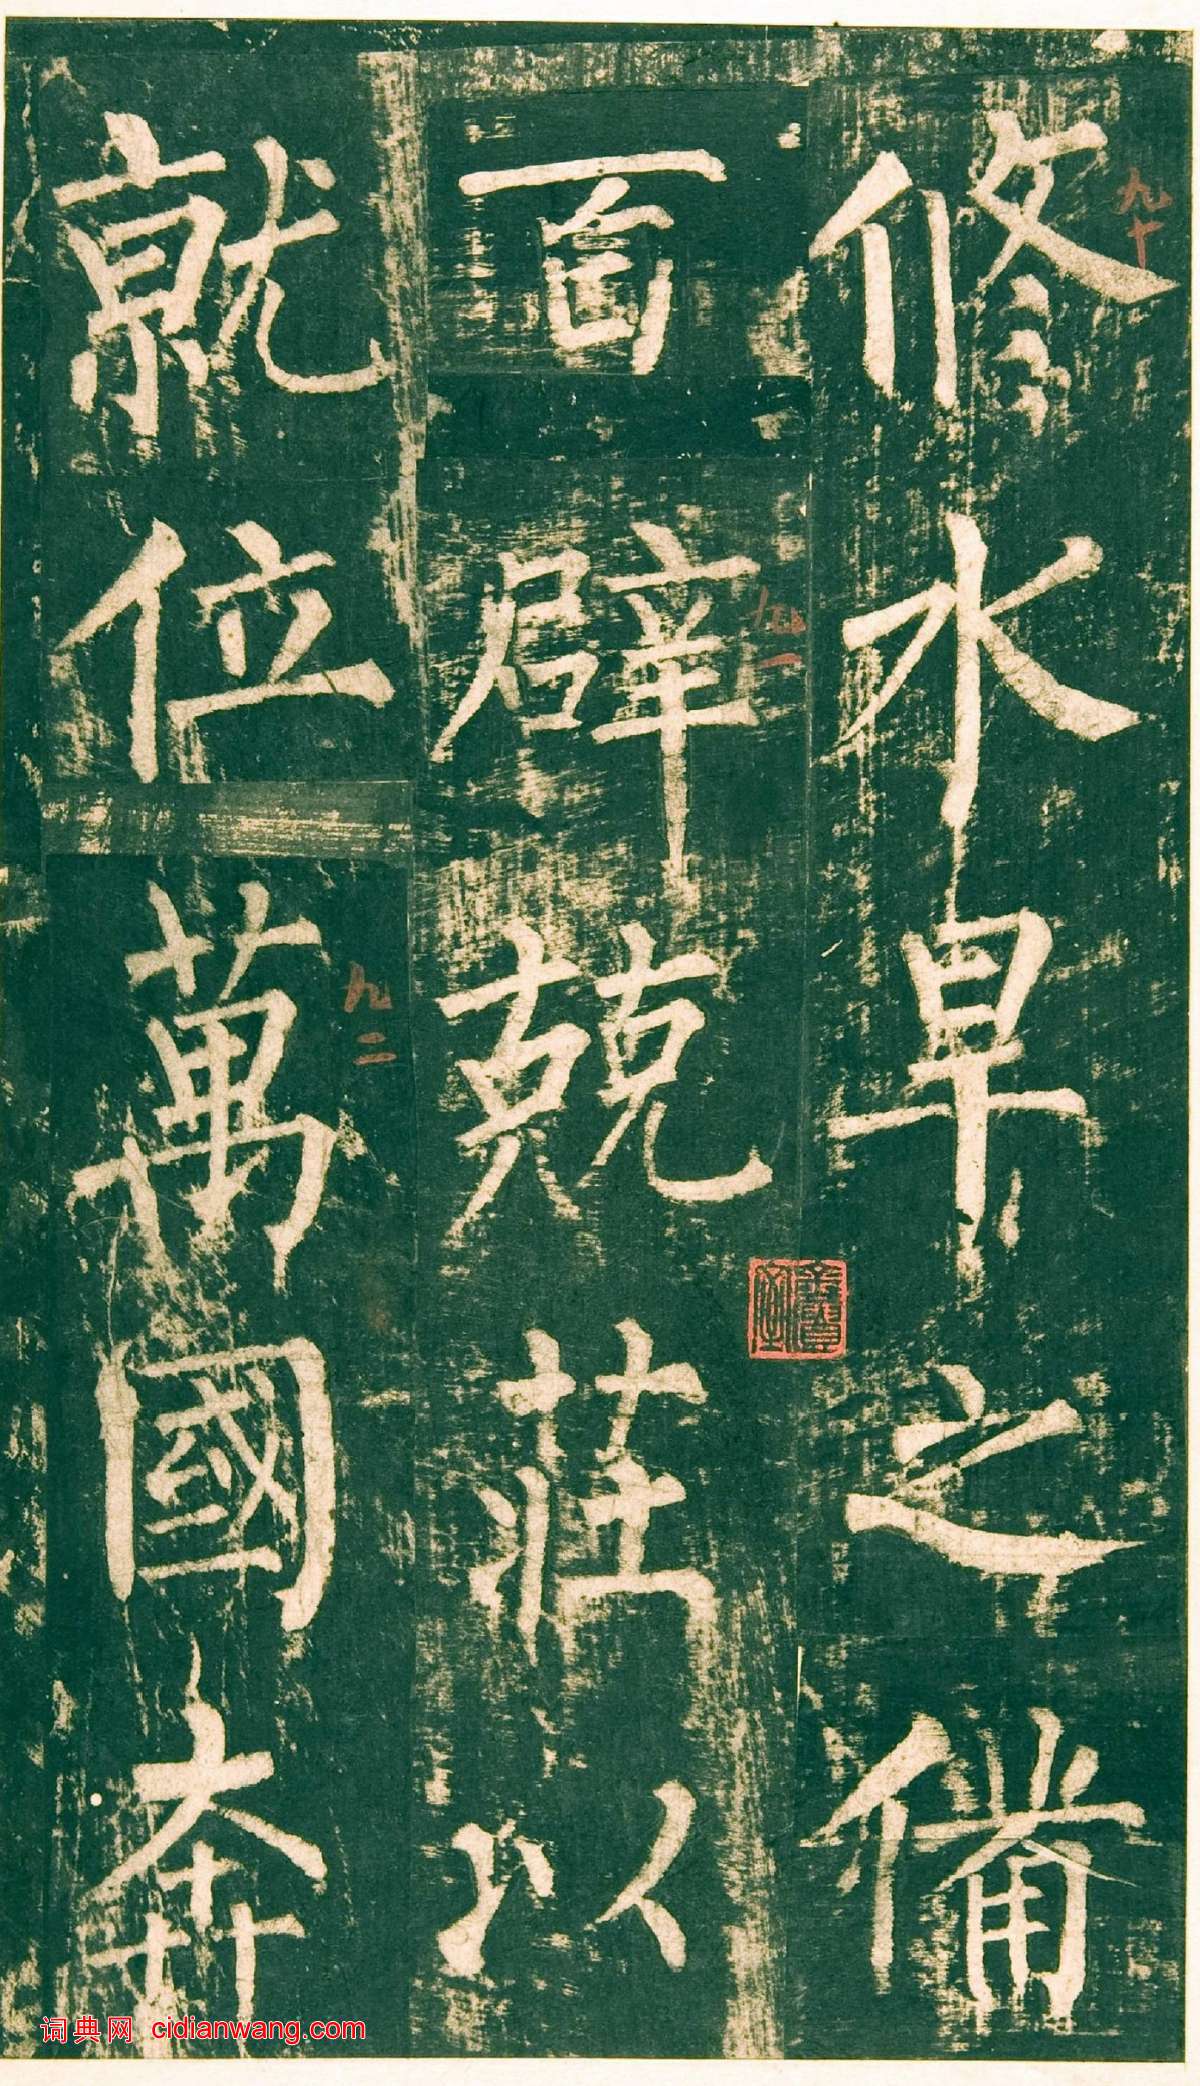 修水旱之備
百辟兢莊以
就位萬國奔
九十
九一
九二
词典网 cidianwang.com